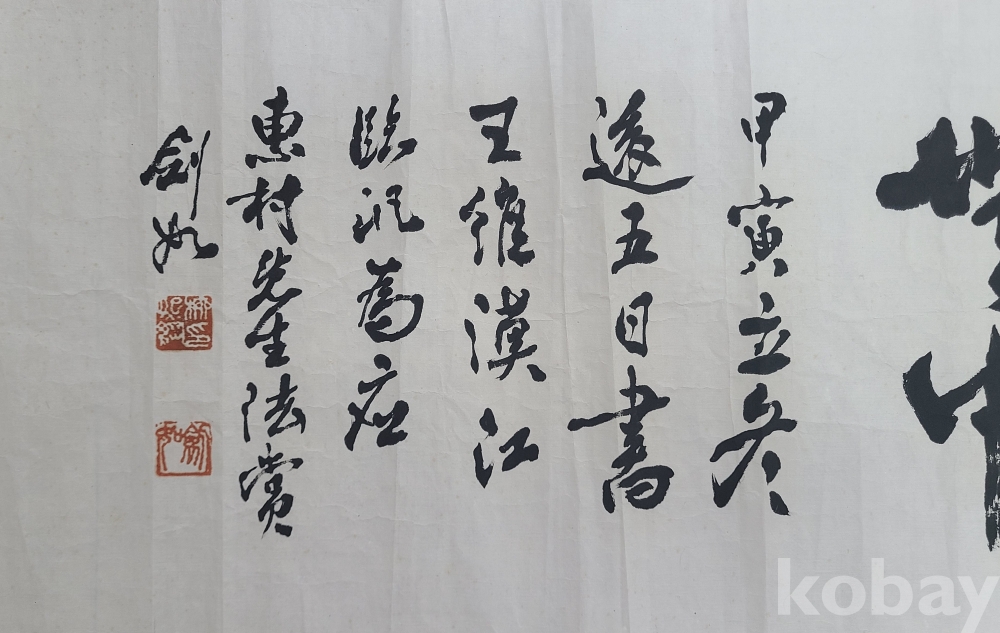 甲寅立冬
後五日書
王維漢江
臨汎為應
惠村先生法賞
劍如
kobay